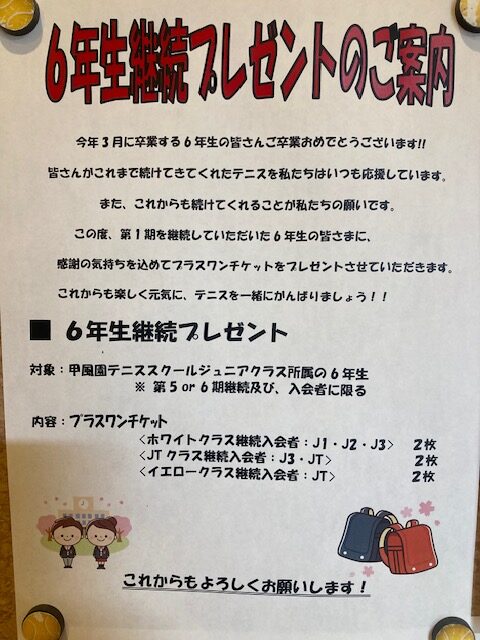 6年生継続プレゼントのご案内
今年3月に卒業する6年生の皆さんご卒業おめでとうございます!!
皆さんがこれまで続けてきてくれたテニスを私たちはいつも応援しています。
また、これからも続けてくれることが私たちの願いです。
この度、第1期を継続していただいた6年生の皆さまに、
感謝の気持ちを込めてプラスワンチケットをプレゼントさせていただきます。
これからも楽しく元気に、テニスを一緒にがんばりましょう!!
■ 6年生継続プレゼント
対象:甲風園テニススクールジュニアクラス所属の6年生
※ 第5or6期継続及び、入会者に限る
内容:プラスワンチケット
<ホワイトクラス継続入会者:J1・J2・J3> 2枚
<JTクラス継続入会者:J3・JT> 2枚
<イエロークラス継続入会者:JT> 2枚
これからもよろしくお願いします!